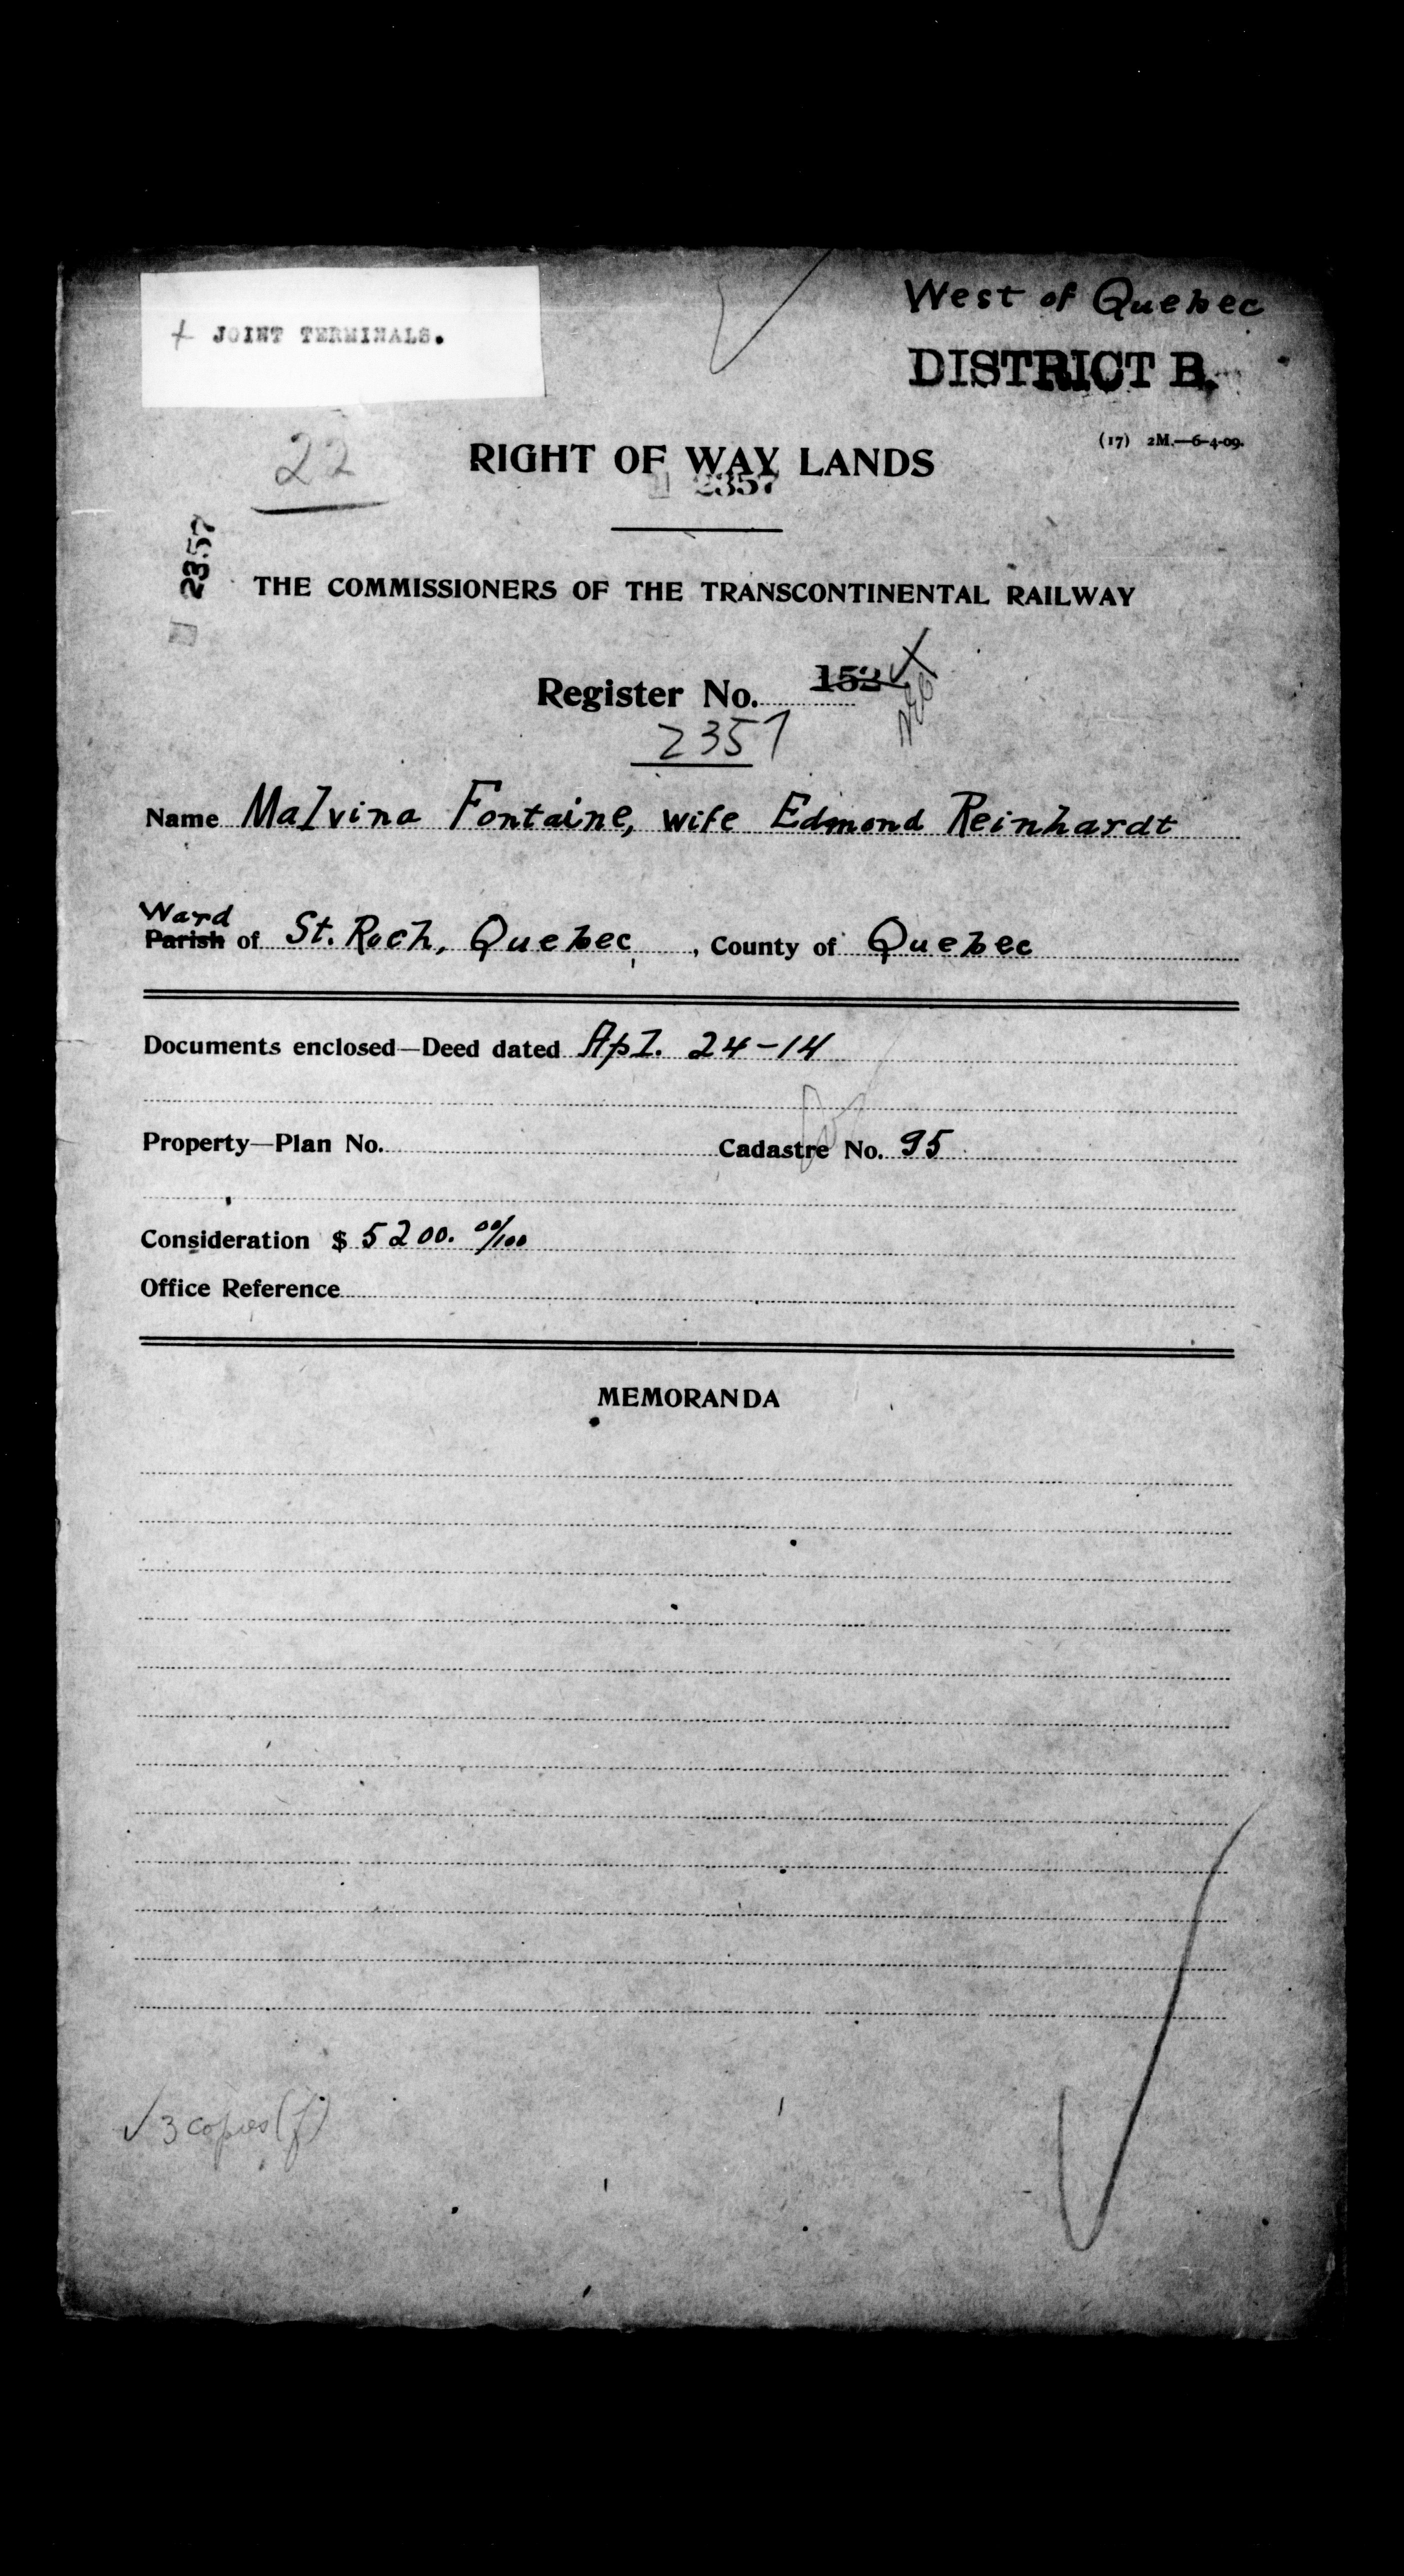 West of Quebec
+ JOINT TERMINALS.
DISTRICT B.
(17) 2M.—6-4-09.
22
RIGHT OF WAY LANDS
2357
2357
THE COMMISSIONERS OF THE TRANSCONTINENTAL RAILWAY
Register No. 152
2357
Name Malvina Fontaine, wife Edmond Reinhardt
Ward
Parish of St. Roch, Quebec, County of Quebec
Documents enclosed—Deed dated Apl. 24-14
Property—Plan No. Cadastre No. 95
Consideration $ 5200. 00/100
Office Reference
MEMORANDA
√ 3 copies (f)